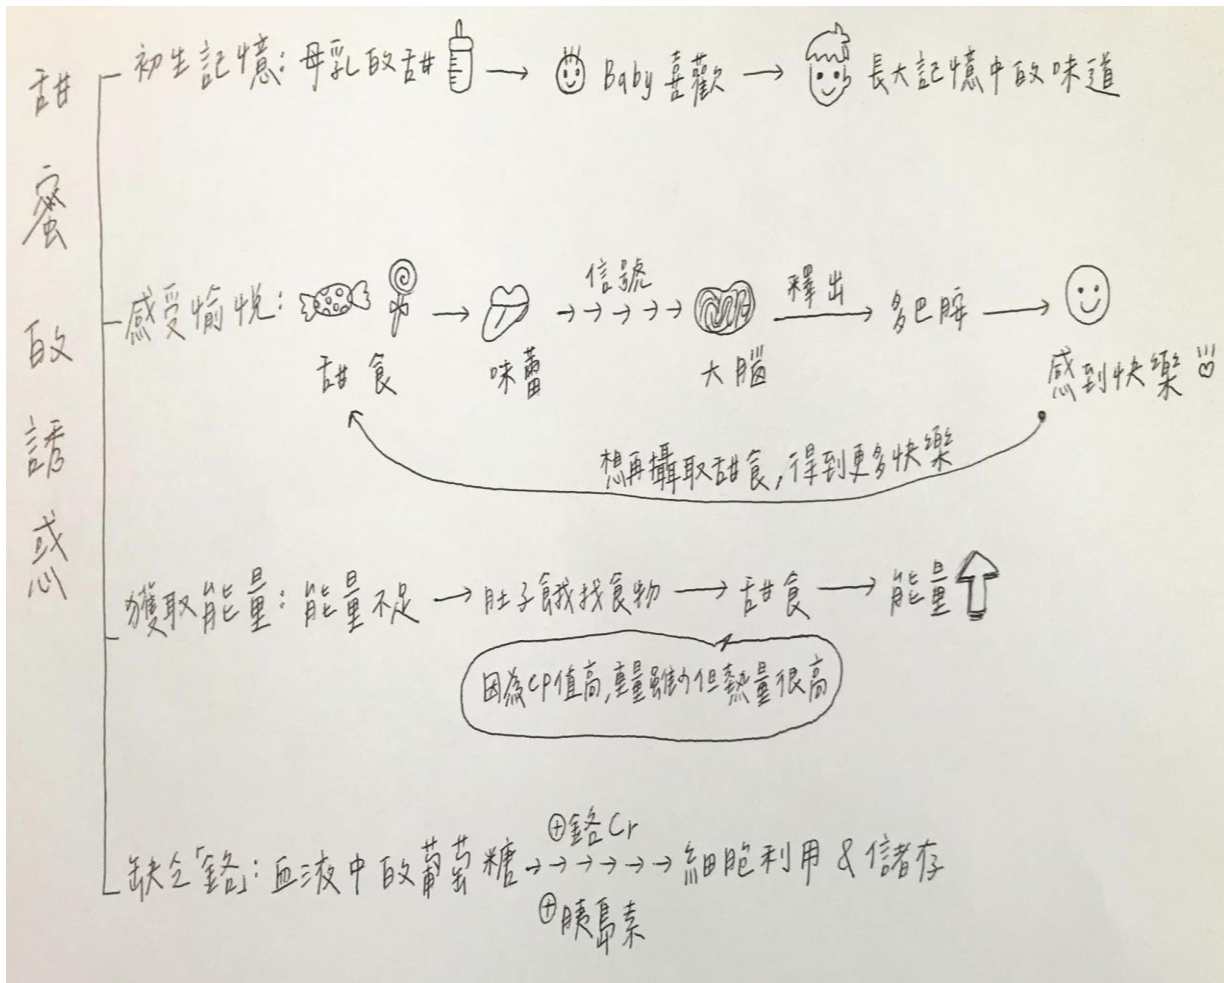 甜蜜的誘惑
初生記憶：母乳的甜 → Baby喜歡 → 長大記憶中的味道
感受愉悅：
信號
釋出
多巴胺
甜食
味蕾
大腦
感到快樂!!!
想再攝取甜食，得到更多快樂
獲取能量：能量不足 → 肚子餓找食物 → 甜食 → 能量
因為CP值高，重量雖小但熱量很高
缺乏「鉻」：血液中的葡萄糖 →→→→→→ 細胞利用 & 儲存
⊕鉻Cr
⊕胰島素